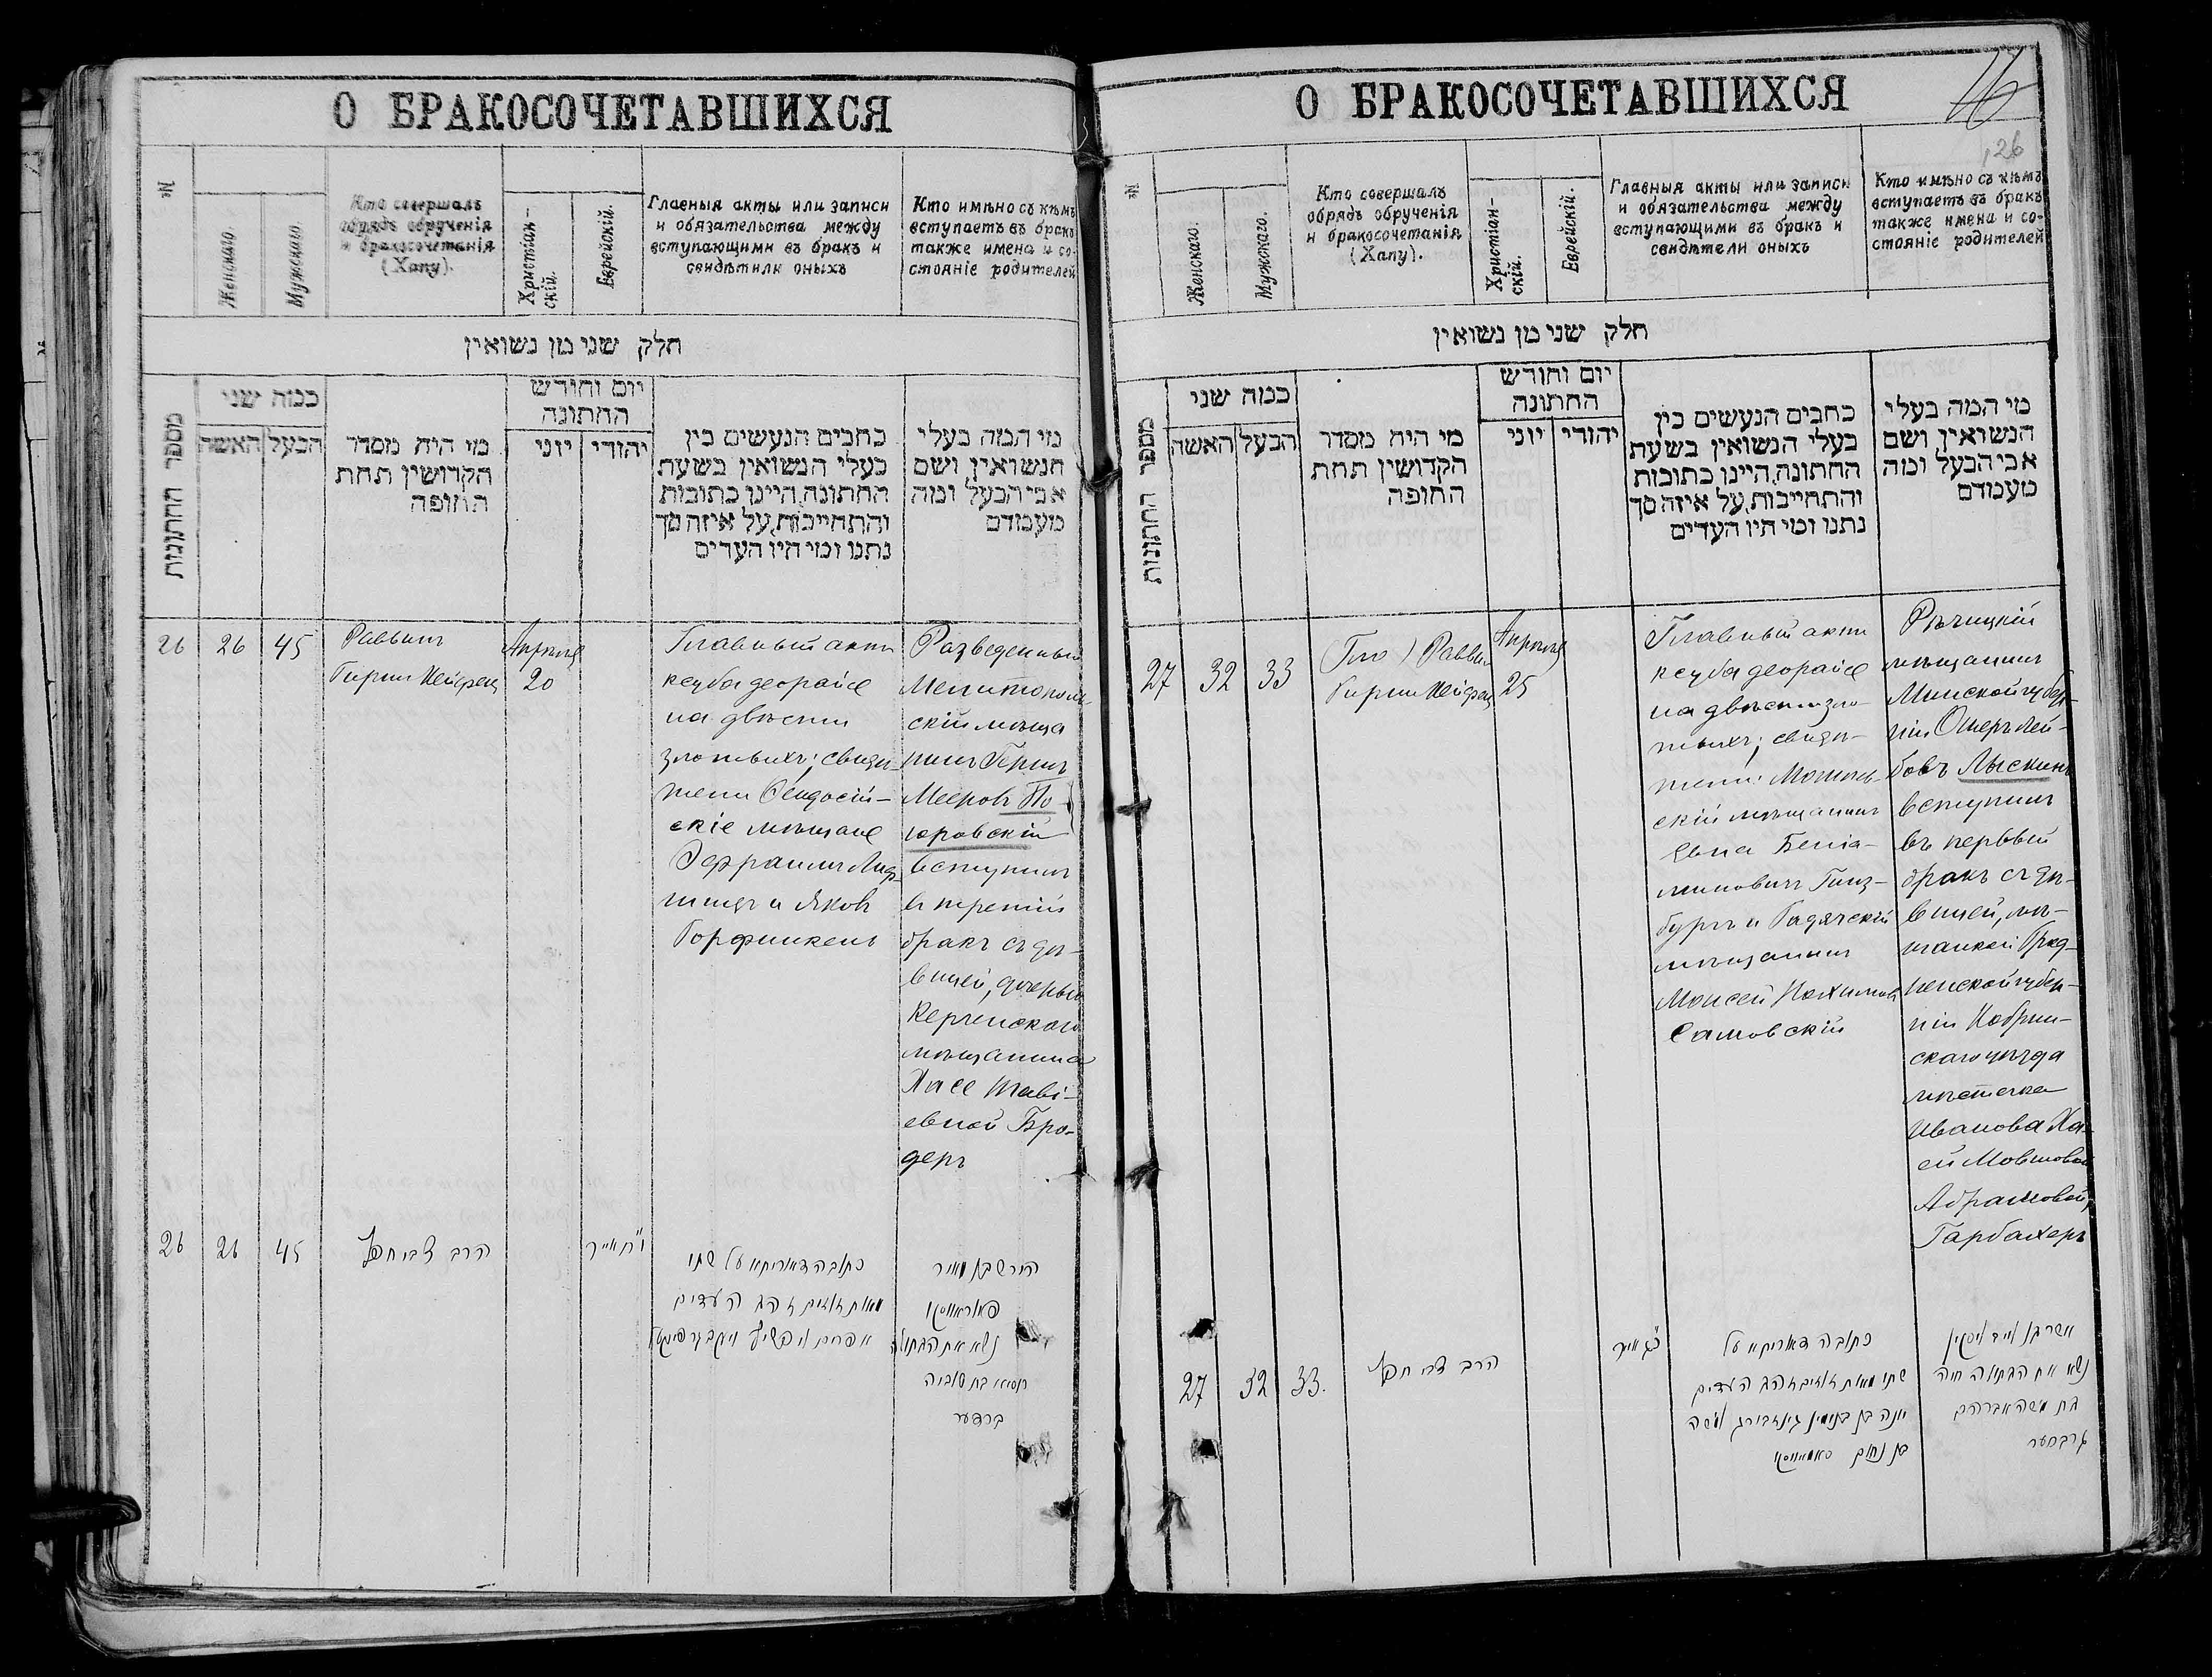 О БРАКОСОЧЕТАВШИХСЯ
№
Женскаго.
Мужскаго.
Кто совершалъ
обрядъ обрученія
и бракосочетанія
(Хапу).
Христіан-
скій.
Еврейскій.
Главныя акты или записи
и обязательства между
вступающими въ бракъ и
свидѣтили оныхъ
Кто имѣно съ кѣмъ
вступаетъ въ бракъ
также имена и со-
стояніе родителей
חלק שני מן נשואין
מספר החתונות
כמה שני
האשה
הבעל
מי היה מסדר
הקדושין תחת
החופה
יום וחודש
החתונה
יוני
יהודי
כתבים הנעשים בין
בעלי הנשואין בשעת
החתונה, היינו כתובות
והתחייבות, על איזה סך
נתנו ומי היו העדים
מי המה בעלי
הנשואין ושם
אבי הבעל ומה
מעמדם
26
26
45
Раввинъ
Гирш Хейфец
Апрѣля
20
Главный актъ
ксуба деорайсе
на двѣсти
злотыхъ; свидѣ-
тели Ѳеодосій-
скіе мѣщане
Эфраимъ Лиф-
шицъ и Яковъ
Горфинкель
Разведенный
Мелитополь-
скій мѣща
нинъ Гершъ
Мееровъ По-
юровскій
вступилъ
въ третій
бракъ съ дѣ-
вицей, дочерью
Керченскаго
мѣщанина
Хасе Теві-
евной Бро-
деръ
26
26
45
הרב צבי חפץ
ו"ח אייר
כתובה דאורייתא על שתי
מאות זהובים והעדים
אפרים ליפשיץ ויעקב גרפינקל
הירש בן מאיר
פאיוראווסקי
נשא את הבתולה
חסיא בת טוביה
ברדער
О БРАКОСОЧЕТАВШИХСЯ
16
126
№
Женскаго.
Мужскаго.
Кто совершалъ
обрядъ обрученія
и бракосочетанія
(Хапу).
Христіан-
скій.
Еврейскій.
Главныя акты или записи
и обязательства между
вступающими въ бракъ и
свидѣтели оныхъ
Кто имѣно съ кѣмъ
вступаетъ въ бракъ
также имена и со-
стояніе родителей
חלק שני מן נשואין
מספר החתונות
כמה שני
האשה
הבעל
מי היה מסדר
הקדושין תחת
החופה
יום וחודש
החתונה
יוני
יהודי
כתבים הנעשים בין
בעלי הנשואין בשעת
החתונה, היינו כתובות
והתחייבות, על איזה סך
נתנו ומי היו העדים
מי המה בעלי
הנשואין ושם
אבי הבעל ומה
מעמדם
27
32
33
Раввин
Гирш Хейфец
Апрѣля
25
Главный актъ
ксуба деорайсе
на двѣсти зло-
тыхъ; свидѣ-
тели: Могилев-
скій мѣщанинъ
Бенiа-
миновичъ Гинз-
бургъ и Гадячскій
мѣщанинъ
Моисей Нахимовъ
Самовскій
Рѣчицкій
мѣщанинъ
Минской губер-
ніи Ошеръ Лей-
бовъ Лыскинъ
вступилъ
въ первый
бракъ съ дѣ-
вицей, мѣ-
щанкой Грод-
ненской губер-
ніи Кобрин-
скаго уѣзда
мѣстечка
Иванова Ха-
ей Мовшовой
Абрамовой
Гарбахеръ
27
32
33.
הרב צבי חפץ
כ"ג אייר
כתובה דאורייתא על
שתי מאות זהובים והעדים
יונה בן בנימין גינזבורג ומשה
בן נחום סאמאווסקי
אשר בן לייב ליסקין
נשא את הבתולה חיה
בת משה אברהם
גרבחער